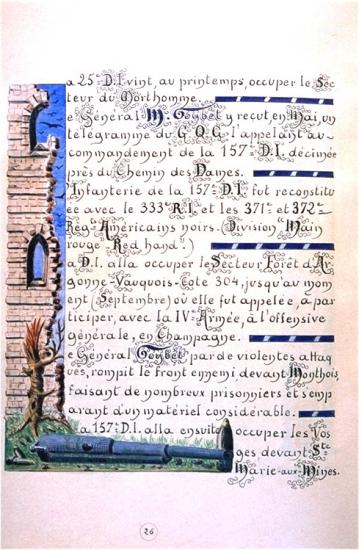 a 25e D.I. vint, au printemps, occuper le Sec
teur du Morthomme.
e Général M. Goybet y reçut en Mai, un
télégramme du G.Q.G. l'appelant au
commandement de la 157e D.I. décimée
près du Chemin des Dames.
Infanterie de la 157e D.I. fut reconstitu
ée avec le 333e R.I. et les 371e et 372e
Régts Américains noirs. (Division "Main
rouge - Red hand".)
a D.I. alla occuper le Secteur Forêt d'Ar
gonne-Vauquois-Cote 304, jusqu'au mom
ent (Septembre) où elle fut appelée, à par
ticiper, avec la IVe Armée, à l'offensive
générale, en Champagne.
e Général Goybet par de violentes attaq
ues, rompit le front ennemi devant Monthois,
faisant de nombreux prisonniers et s'emp
arant d'un matériel considérable.
a 157e D.I. alla ensuite occuper les Vos
ges devant Ste
Marie-aux-Mines.
26